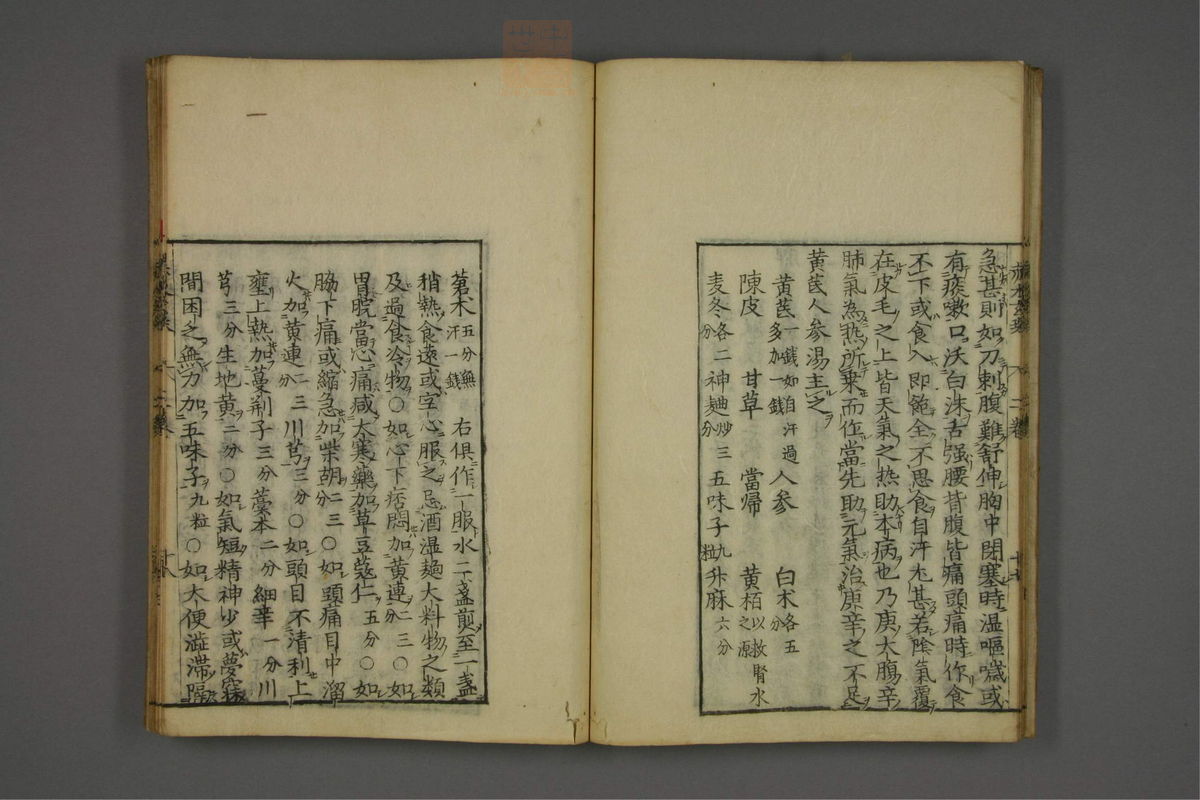 急甚則如刀刺腹難舒伸胸中閉塞時溫嘔噦或
有痰嗽口沃白沫舌强腰背腹皆痛頭痛時作食
不下或食入即飽全不思食自汗尤甚若陰氣覆
在皮毛之上皆天氣之热助本病也乃庚大腸辛
肺氣為热所乗而作當先助元氣治庚辛之不足
黄芪人参湯主之
黄芪一錢如自汗過多加一錢 人参 白朮各五分
陳皮 甘草 當帰 黄栢以救腎水之源
麦冬各二分 神麯炒三分 五味子九粒 升麻六分
蒼朮五分無汗一錢 右俱作一服水二盞煎至一盞
稍熱食遠或空心服之忌酒温麺大料物之類
及過食冷物○如心下痞悶加黄連二三分○如
胃脘當心痛减大寒藥加草豆蔻仁五分○如
脇下痛或縮急加柴胡二三分○如頭痛目中溜
火加黄連二三分川芎三分○如頭目不清利上
壅上熱加蔓荆子三分藁本二分細辛一分川
芎三分生地黄二分○如氣短精神少或夢寐
間困乏無力加五味子九粒○如大便澁滞隔